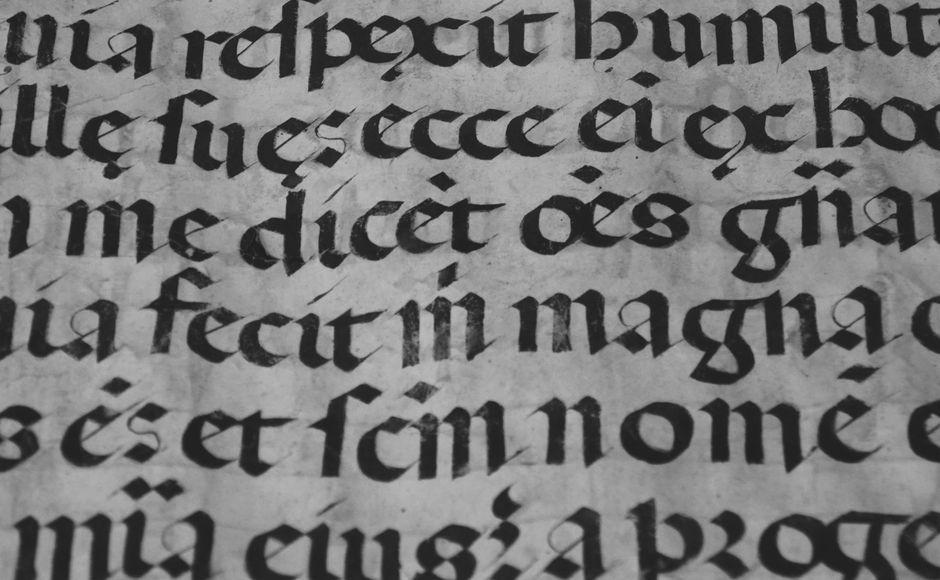 uia reſpexit humilit
illę ſuę: ecce ei ex hoc
me dicēt oēs gn̄a
uia fecit m̍ magna
s ē: et ſcm̄ nomē e
mīa eius: a proge